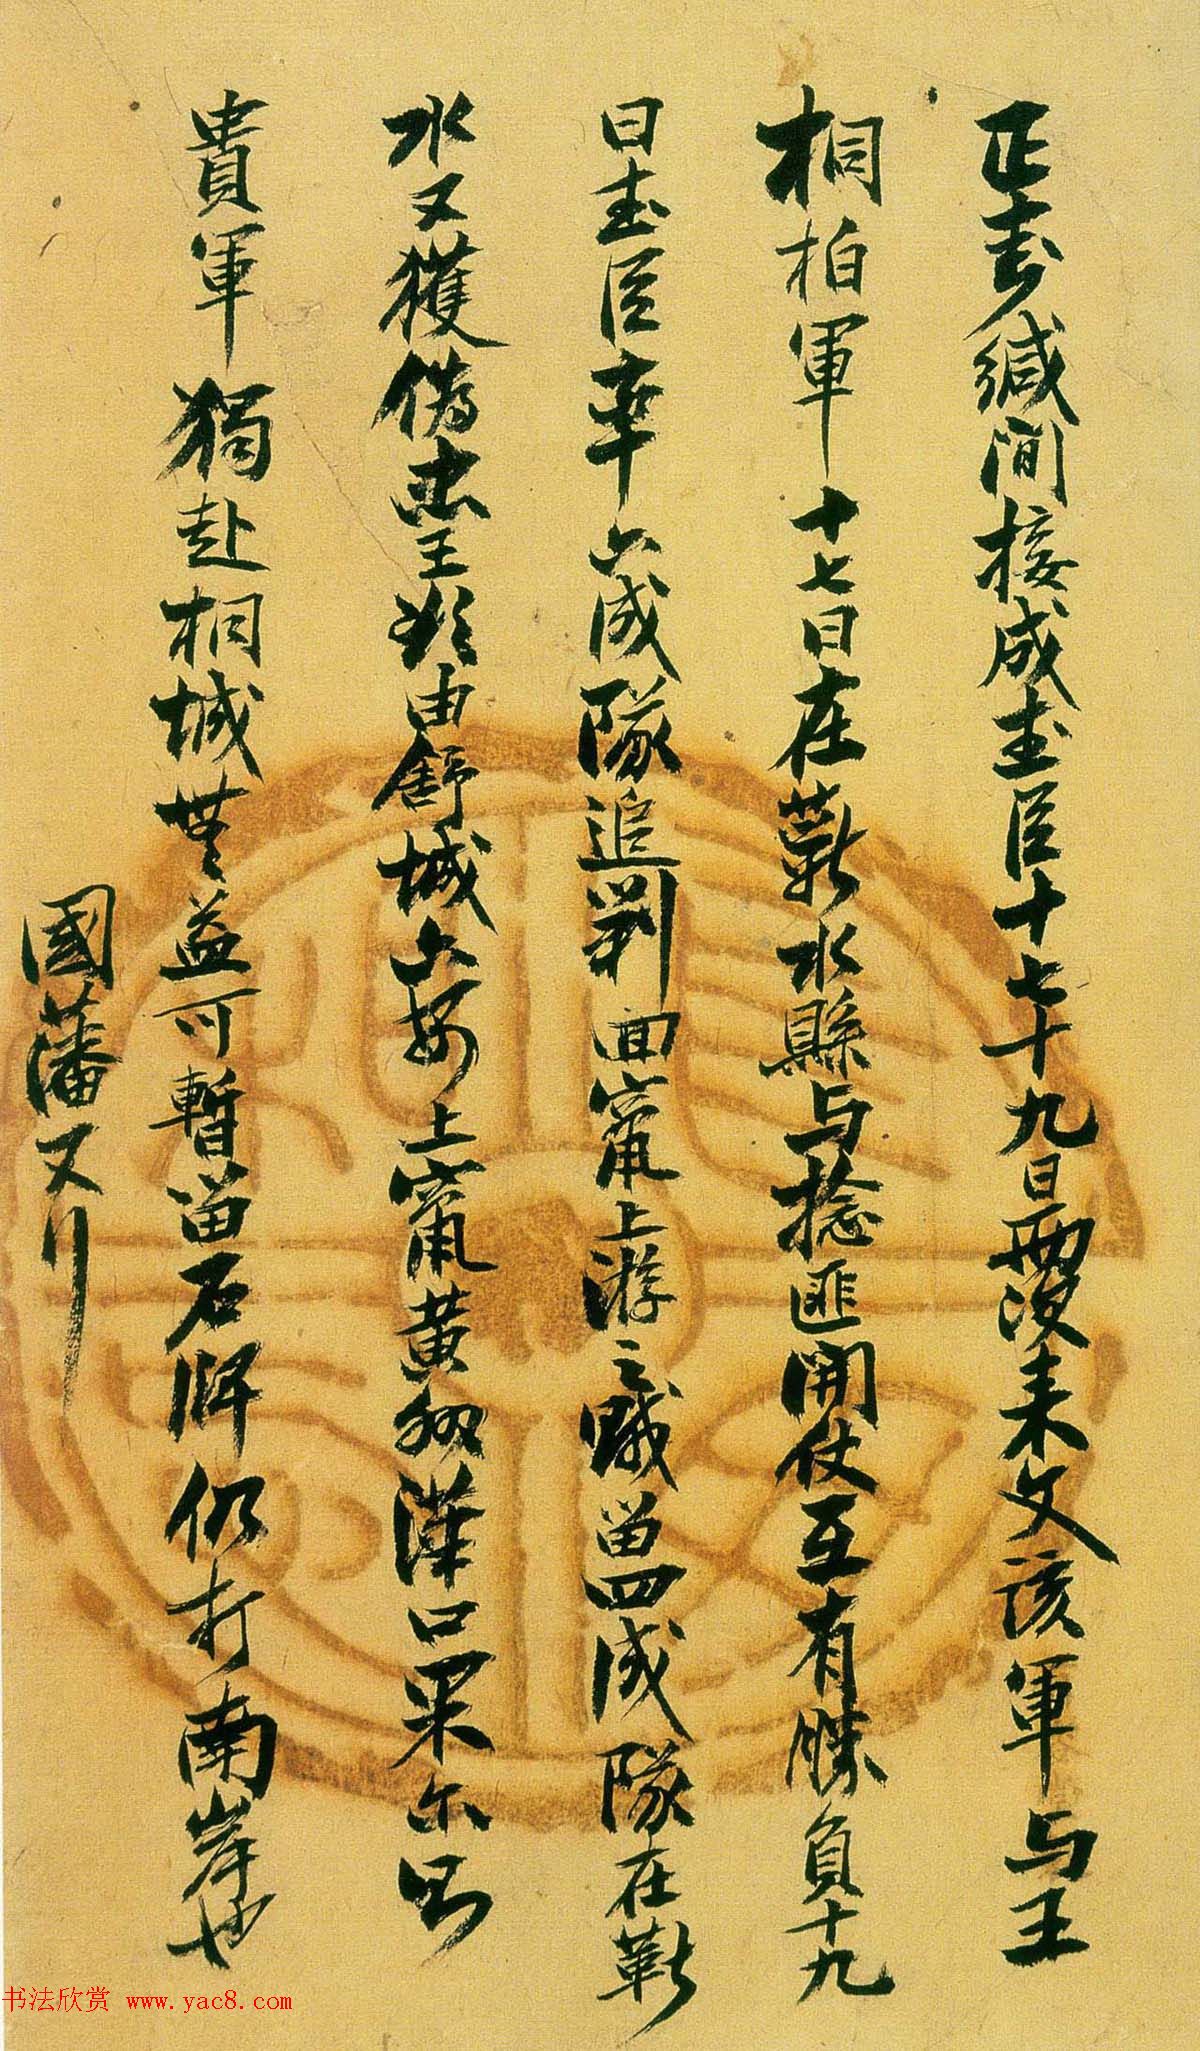 正書緘間接成武臣十七十九日兩次來文該軍与王
桐柏軍十七日在蘄水縣与捻匪開仗互有勝負十九
日武臣率六成隊追剿回竄上游之賊留四成隊在蘄
水又獲偽忠王 由舒城六安上竄黃州漢口果尔則
貴軍獨赴桐城無益可暫留石牌仍打南岸也
國藩又行
书法欣赏 www.yac8.com